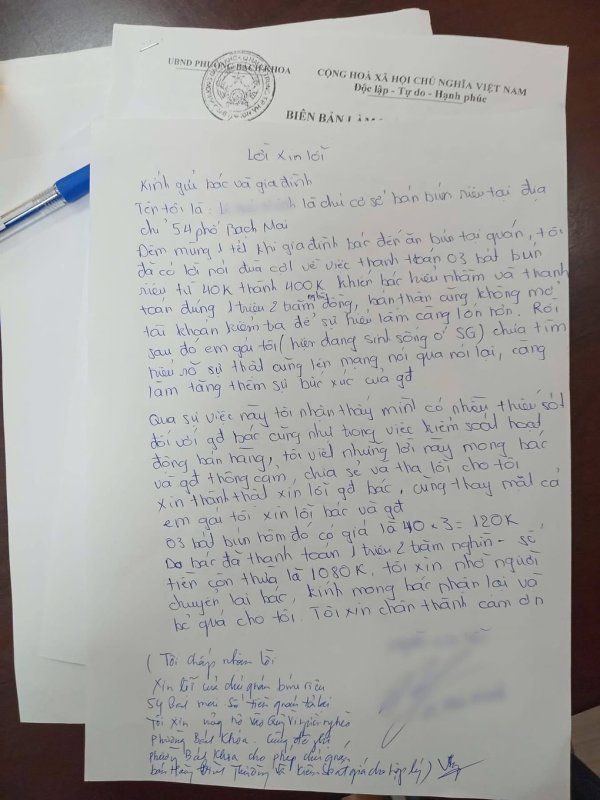 UBND PHƯỜNG BÁCH KHOA
CỘNG HOÀ XÃ HỘI CHỦ NGHĨA VIỆT NAM
Độc lập - Tự do - Hạnh phúc
BIÊN BẢN LÀM
Lời xin lỗi
Kính gửi bác và gia đình
Tên tôi là: là chủ cơ sở bán bún riêu tại địa
chỉ 54 phố Bạch Mai
Đêm mùng 1 tết khi gia đình bác đến ăn bún tại quán, tôi
đã có lời nói đùa cợt về việc thanh toán 03 bát bún
riêu từ 40K thành 400K khiến bác hiểu nhầm và thanh
toán đúng 1 triệu 2 trăm nghìn đồng, bản thân cũng không mở
tài khoản kiểm tra để sự hiểu lầm càng lớn hơn. Rồi
sau đó em gái tôi (hiện đang sinh sống ở SG) chưa tìm
hiểu rõ sự thật cũng lên mạng nói qua nói lại, càng
làm tăng thêm sự bức xúc của gđ
Qua sự việc này tôi nhận thấy mình có nhiều thiếu sót
đối với gđ bác cũng như trong việc kiểm soát hoạt
động bán hàng, tôi viết những lời này mong bác
và gđ thông cảm, chia sẻ và tha lỗi cho tôi
Xin thành thật xin lỗi gđ bác, cũng thay mặt cả
em gái tôi xin lỗi bác và gđ
03 bát bún hôm đó có giá là 40 x 3 = 120K
Do bác đã thanh toán 1 triệu 2 trăm nghìn - số
tiền còn thừa là 1080K. tôi xin nhờ người
chuyển lại bác, kính mong bác nhận lại và
bỏ quá cho tôi. Tôi xin chân thành cảm ơn
( Tôi chấp nhận lời
Xin lỗi của chủ quán bún riêu
54 Bạch mai số tiền quán trả lại
Tôi xin ủng hộ vào Quỹ Vì người nghèo
phường Bách Khoa. Cũng đề nghị
phường Bách Khoa cho phép chủ quán
bán hàng bình thường và kiểm soát giá cho hợp lý )